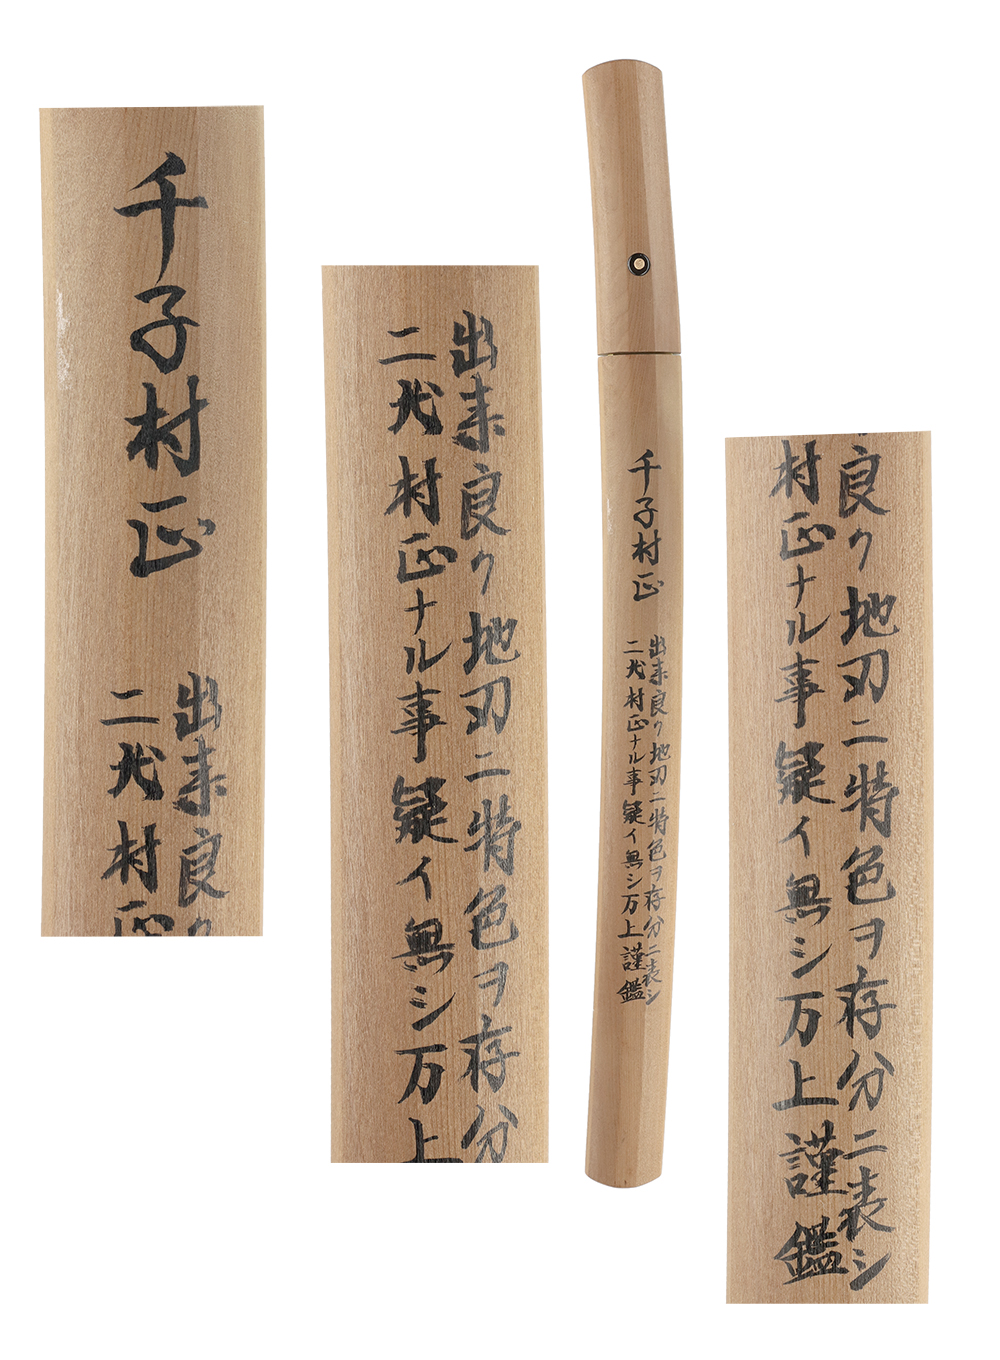 千子村正
出来良ク
二代村正
出来良ク地刃ニ特色ヲ存分
二代村正ナル事疑イ無シ万上
千子村正
出来良ク地刃ニ特色ヲ存分ニ表シ
二代村正ナル事疑イ無シ万上謹鑑
良ク地刃ニ特色ヲ存分ニ表シ
村正ナル事疑イ無シ万上謹鑑